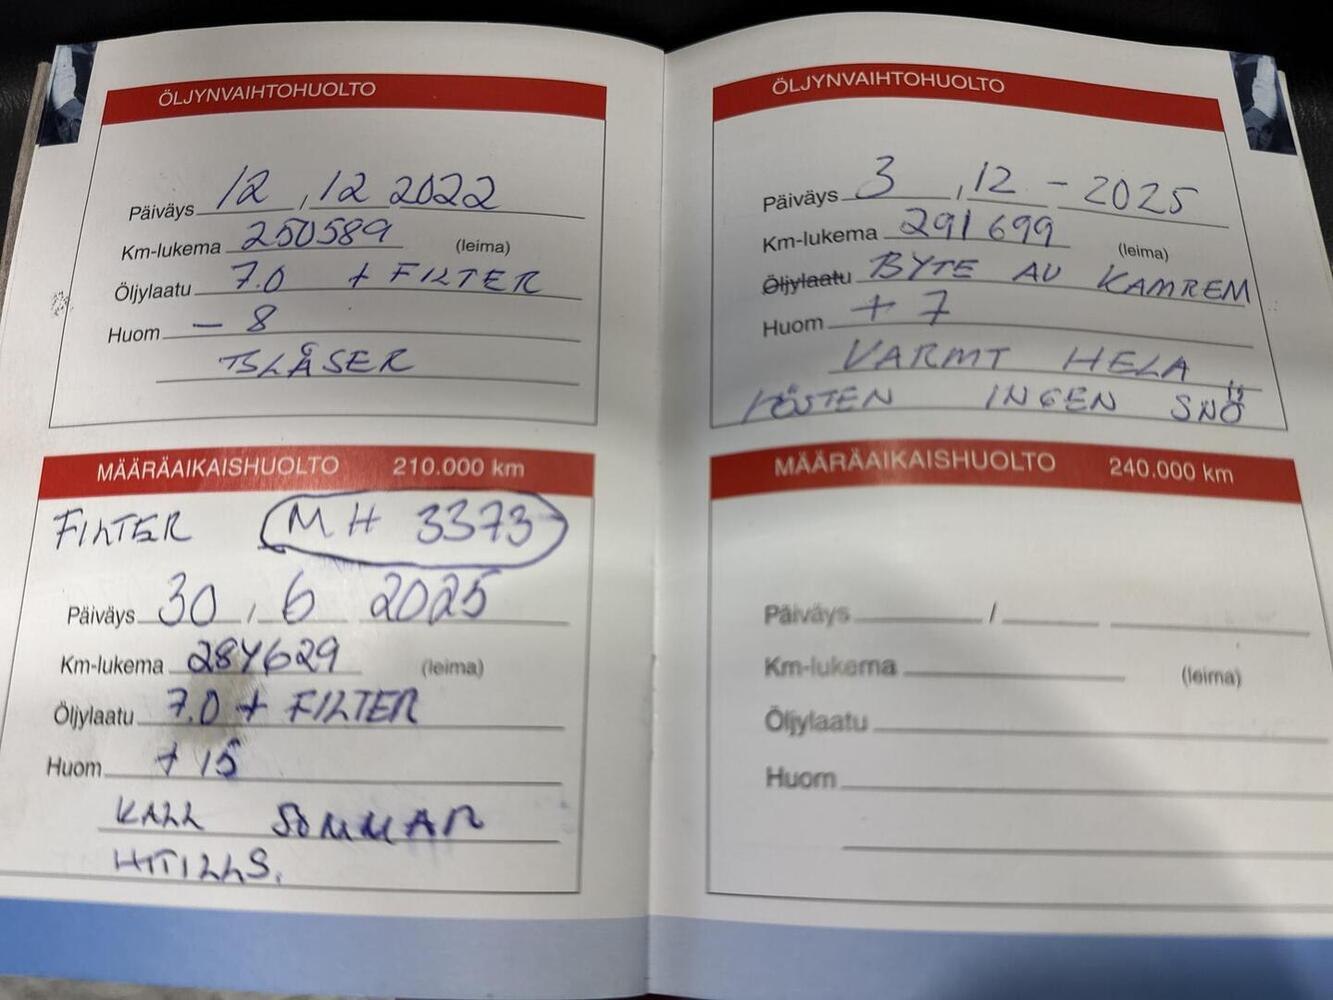 ÖLJYNVAIHTOHUOLTO
Päiväys 12 , 12 2022
Km-lukema 250589 (leima)
Öljylaatu 7.0 + FILTER
Huom - 8
BLÅSER
MÄÄRÄAIKAISHUOLTO 210.000 km
FILTER MH 3373
Päiväys 30 , 6 2025
Km-lukema 284629 (leima)
Öljylaatu 7.0 + FILTER
Huom + 15
KALL SOMMAR
HITILLS.
ÖLJYNVAIHTOHUOLTO
Päiväys 3 , 12 - 2025
Km-lukema 291699 (leima)
Öljylaatu BYTE AV KAMREM
Huom + 7
VARMT HELA
HÖSTEN INGEN SNÖ !!
MÄÄRÄAIKAISHUOLTO 240.000 km
Päiväys /
Km-lukema (leima)
Öljylaatu
Huom